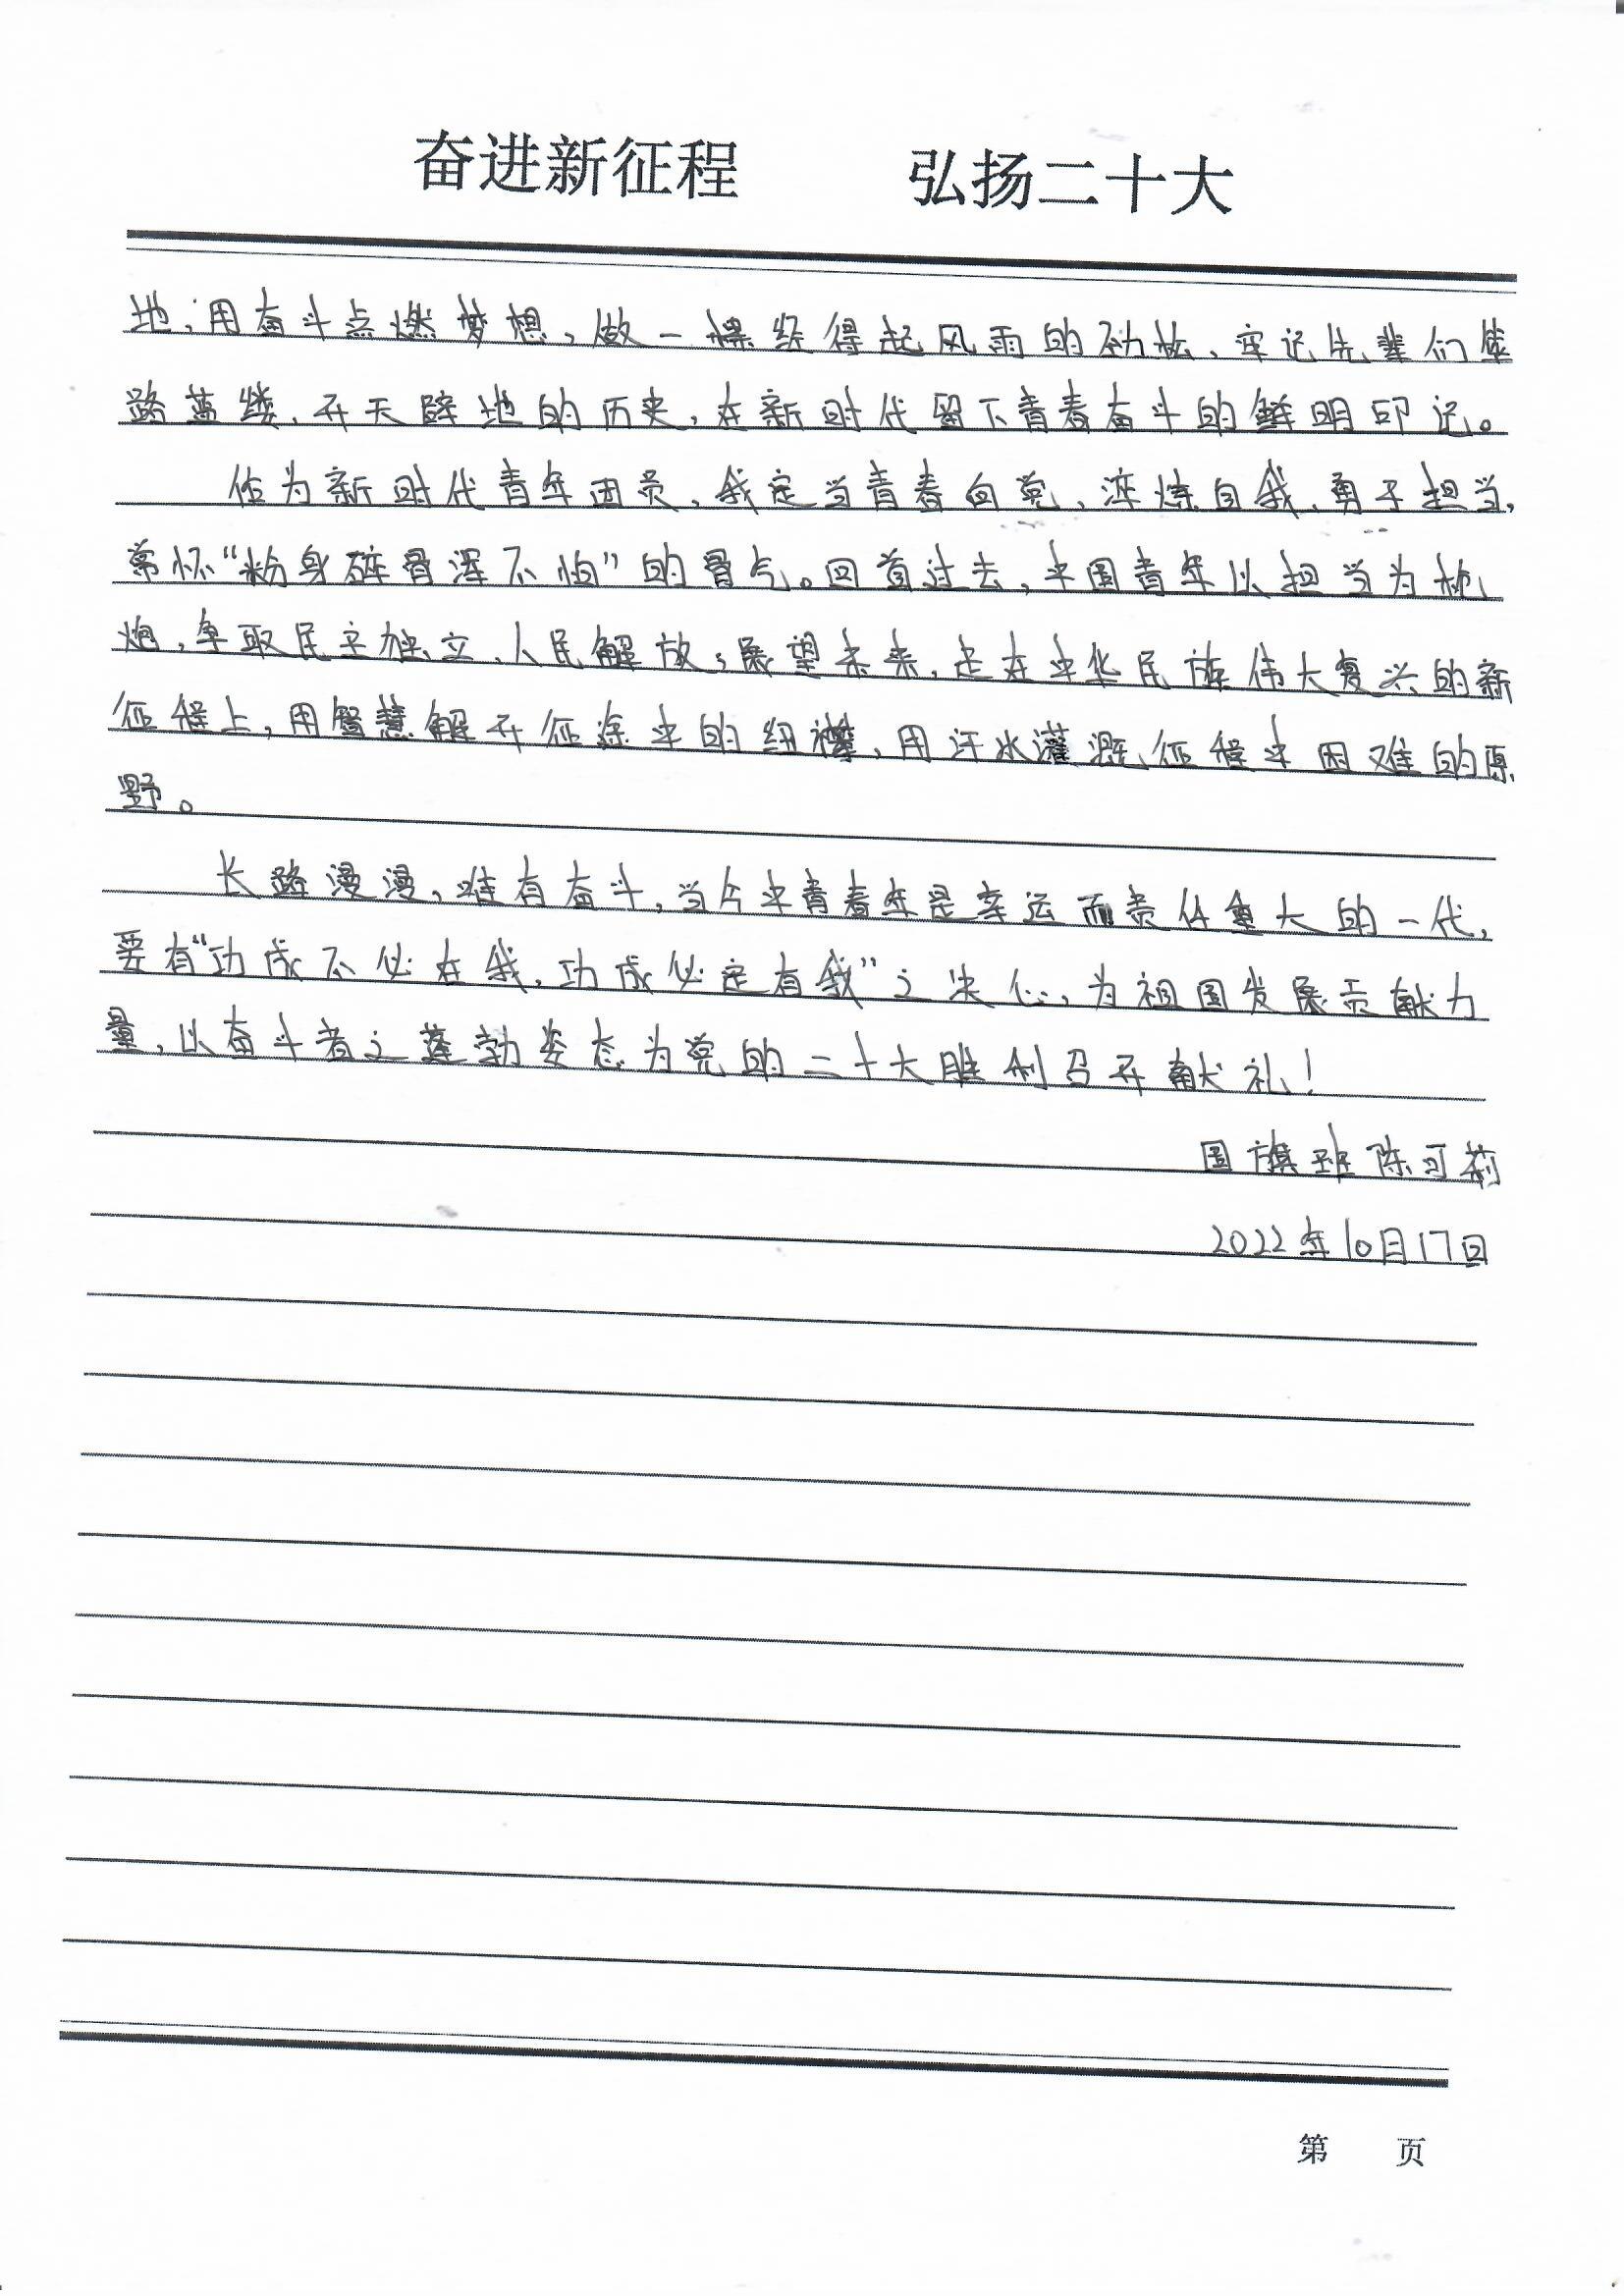 奋进新征程 弘扬二十大
地；用奋斗点燃梦想，做一棵经得起风雨的劲松，牢记先辈们筚
路蓝缕、开天辟地的历史，在新时代留下青春奋斗的鲜明印记。
作为新时代青年团员，我定当青春向党，淬炼自我，勇于担当，
常怀“粉身碎骨浑不怕”的骨气。回首过去，中国青年以担当为枪
炮，争取民主独立、人民解放；展望未来，走在中华民族伟大复兴的新
征程上，用智慧解开征途中的纽襻，用汗水灌溉征程中困难的原
野。
长路漫漫，唯有奋斗，当今中青春年是幸运而责任重大的一代，
要有“功成不必在我，功成必定有我”之决心，为祖国发展贡献力
量，以奋斗者之蓬勃姿态为党的二十大胜利召开献礼！
国旗班陈可莉
2022年10月17日
第 页